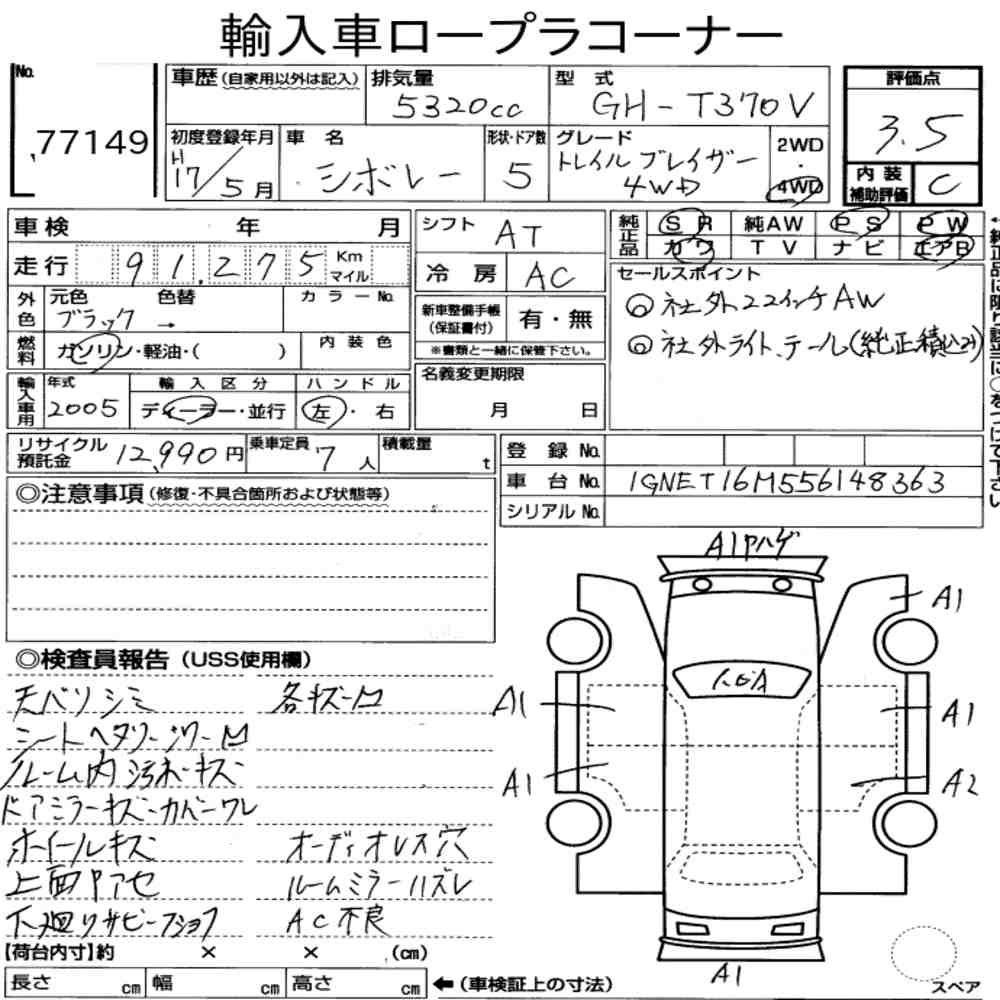 輸入車ロープラコーナー
No. 77149
車歴(自家用以外は記入)
排気量 5320cc
型式 GH-T370V
評価点 3.5
初度登録年月 H17/5月
車名 シボレー
形状・ドア数 5
グレード トレイルブレイザー 4WD
2WD・4WD
内装補助評価 C
車検 年 月
シフト AT
純正品 SR 純AW PS PW
カワ TV ナビ エアB
走行 91,275 Km マイル
冷房 AC
セールスポイント
◎社外22インチAW
◎社外ライト、テール(純正積込み)
外色 元色 ブラック → 色替 カラーNo.
新車整備手帳(保証書付) 有・無
※書類と一緒に保管下さい。
燃料 ガソリン・軽油・( ) 内装色
名義変更期限 月 日
輸入車用 年式 2005 輸入区分 ディーラー・並行 ハンドル 左・右
リサイクル預託金 12,990円 乗車定員 7人 積載量 t
登録No.
車台No. 1GNET16M556148363
シリアルNo.
◎注意事項(修復・不具合箇所および状態等)
A1 アハゲ
A1
◎検査員報告(USS使用欄)
天ベソシミ 各キズ・凹
A1 A1
シートヘタリ・シワ・凹
ルーム内汚れ・キズ
A1 A2
ドアミラーキズ・カバーワレ
ホイールキズ オーディオレス穴
上面アアセ ルームミラーハズレ
下廻りサビ・フショク AC不良
A1
【荷台内寸】約 × × (cm)
長さ cm 幅 cm 高さ cm
←(車検証上の寸法)
スペア